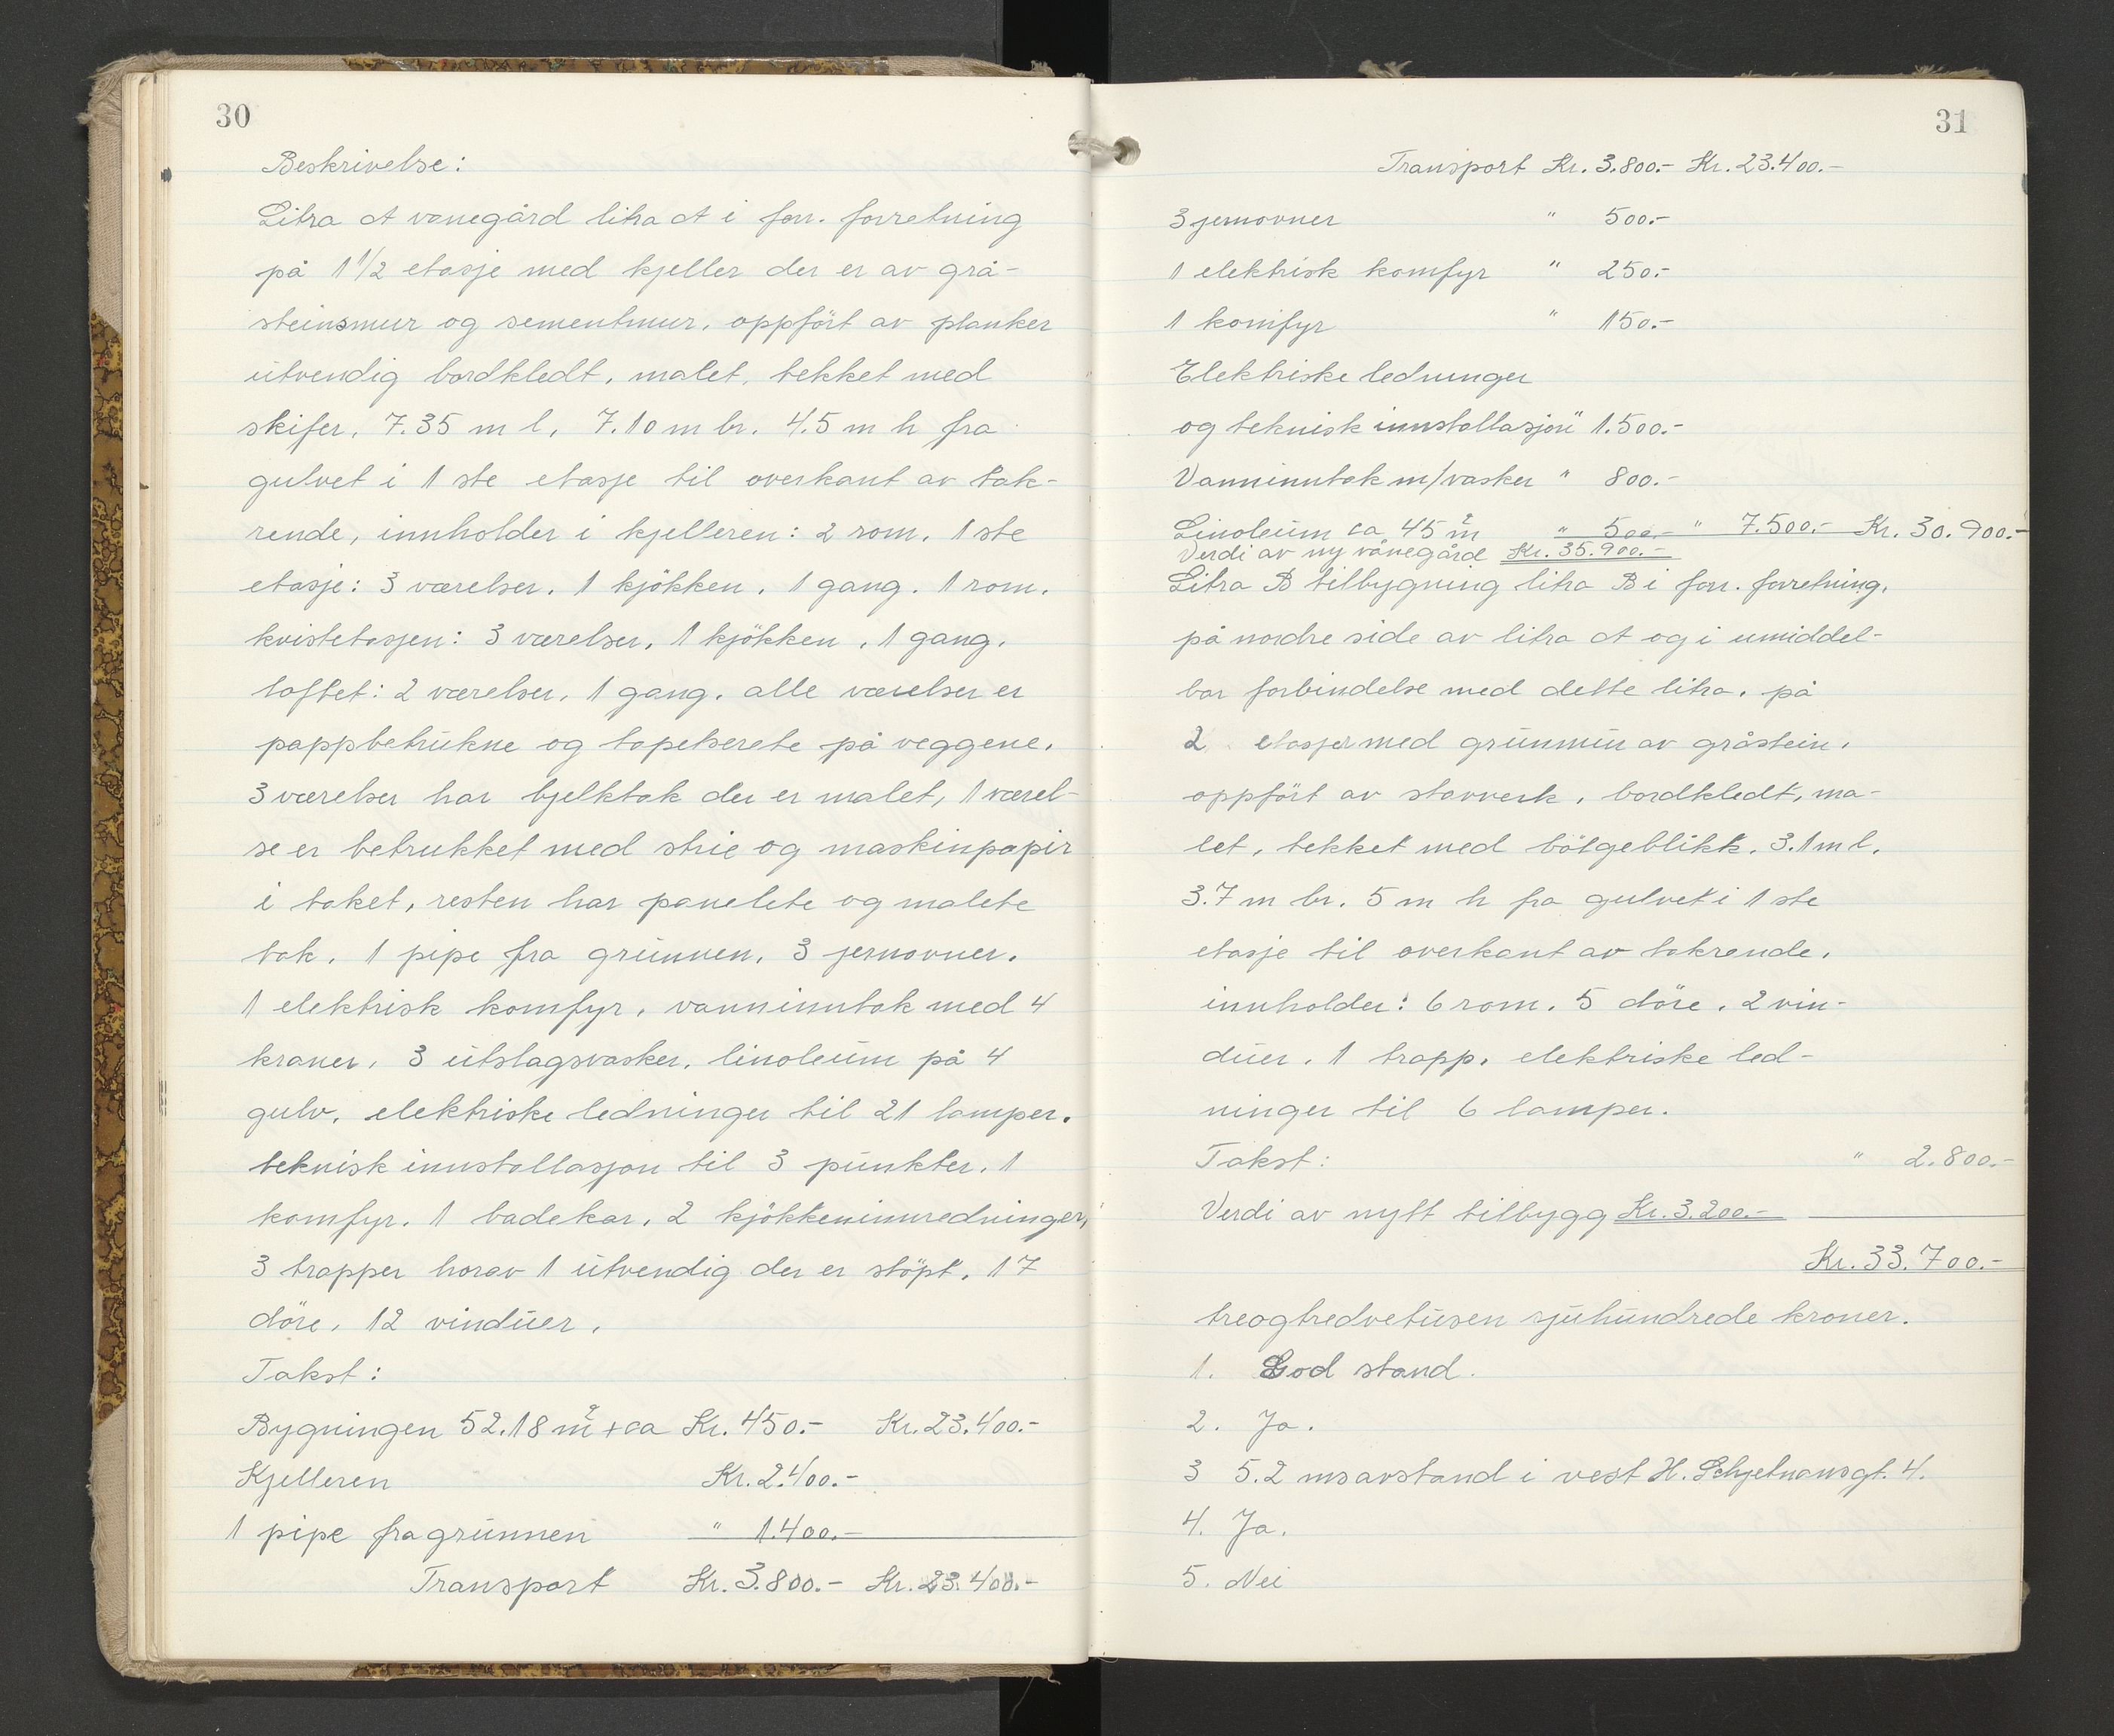 30
Beskrivelse:
Litra A vånegård litra A i forr. forretning
på 1 1/2 etasje med kjeller der er av grå-
steinsmur og sementmur, oppført av planker
utvendig bordkledt, malet, tekket med
skifer, 7.35 m l, 7.10 m br. 4.5 m h fra
gulvet i 1 ste etasje til overkant av tak-
rende, innholder i kjelleren: 2 rom, 1 ste
etasje: 3 værelser, 1 kjökken, 1 gang. 1 rom.
kvistetasjen: 3 værelser, 1 kjökken, 1 gang,
loftet: 2 værelser, 1 gang, alle værelser er
pappbetrukne og tapetserete på veggene,
3 værelser har bjelktak der er malet, 1 værel-
se er betrukket med strie og maskinpapir
i taket, resten har panelete og malete
tak. 1 pipe fra grunnen, 3 jernovner,
1 elektrisk komfyr, vanninntak med 4
kraner, 3 utslagsvasker, linoleum på 4
gulv, elektriske ledninger til 21 lamper.
teknisk innstallasjon til 3 punkter, 1
komfyr, 1 badekar, 2 kjökkeninnredninger,
3 trapper horav 1 utvendig der er stöpt, 17
döre, 12 vinduer,
Takst:
Bygningen 52.18 m² + ca Kr. 450.- Kr. 23.400.-
Kjelleren Kr. 2.400.-
1 pipe fra grunnen " 1.400.-
Transport Kr. 3.800.- Kr. 23.400.-
31
Transport Kr. 3.800.- Kr. 23.400.-
3 jernovner " 500.-
1 elektrisk komfyr " 250.-
1 komfyr " 150.-
Elektriske ledninger
og teknisk innstallasjon " 1.500.-
Vanninntak m/vasker " 800.-
Linoleum ca 45 m² " 500.- " 7.500.- Kr. 30.900.-
Verdi av ny vånegård Kr. 35.900.-
Litra B tilbygning litra B i forr. forretning,
på nordre side av litra A og i umiddel-
bar forbindelse med dette litra, på
2 etasjer med grunnmur av gråstein,
oppfört av stavverk, bordkledt, ma-
let, tekket med bölgeblikk, 3.1 m l,
3.7 m br. 5 m h fra gulvet i 1 ste
etasje til overkant av takrende,
innholder: 6 rom, 5 döre, 2 vin-
duer, 1 trapp, elektriske led-
ninger til 6 lamper.
Takst: " 2.800.-
Verdi av nytt tilbygg Kr. 3.200.-
Kr. 33.700.-
treogtredvetusen sjuhundrede kroner.
1. God stand.
2. Ja.
3 5.2 msavstand i vest H. Schjetnansgt. 4.
4. Ja.
5. Nei